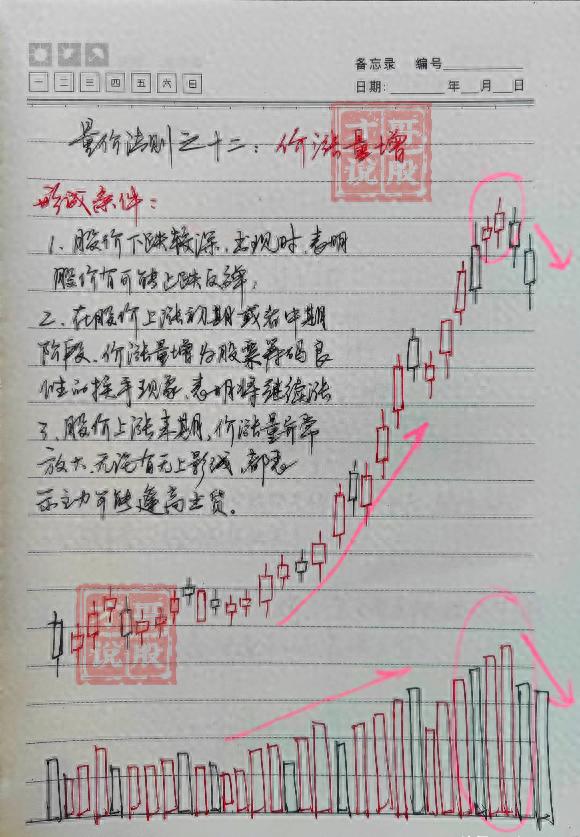 备忘录 编号
一 二 三 四 五 六 日
日期: 年 月 日
量价法则之十二：价涨量增
形成条件：
1、股价下跌较深、出现时、表明
股价有可能止跌反弹；
2、在股价上涨初期或者中期
阶段、价涨量增为股票筹码良
性的换手现象、表明将继续涨
3、股价上涨末期、价涨量异常
放大、无论有无上影线、都表
示主力可能逢高出货。
哥
说股
哥
说股